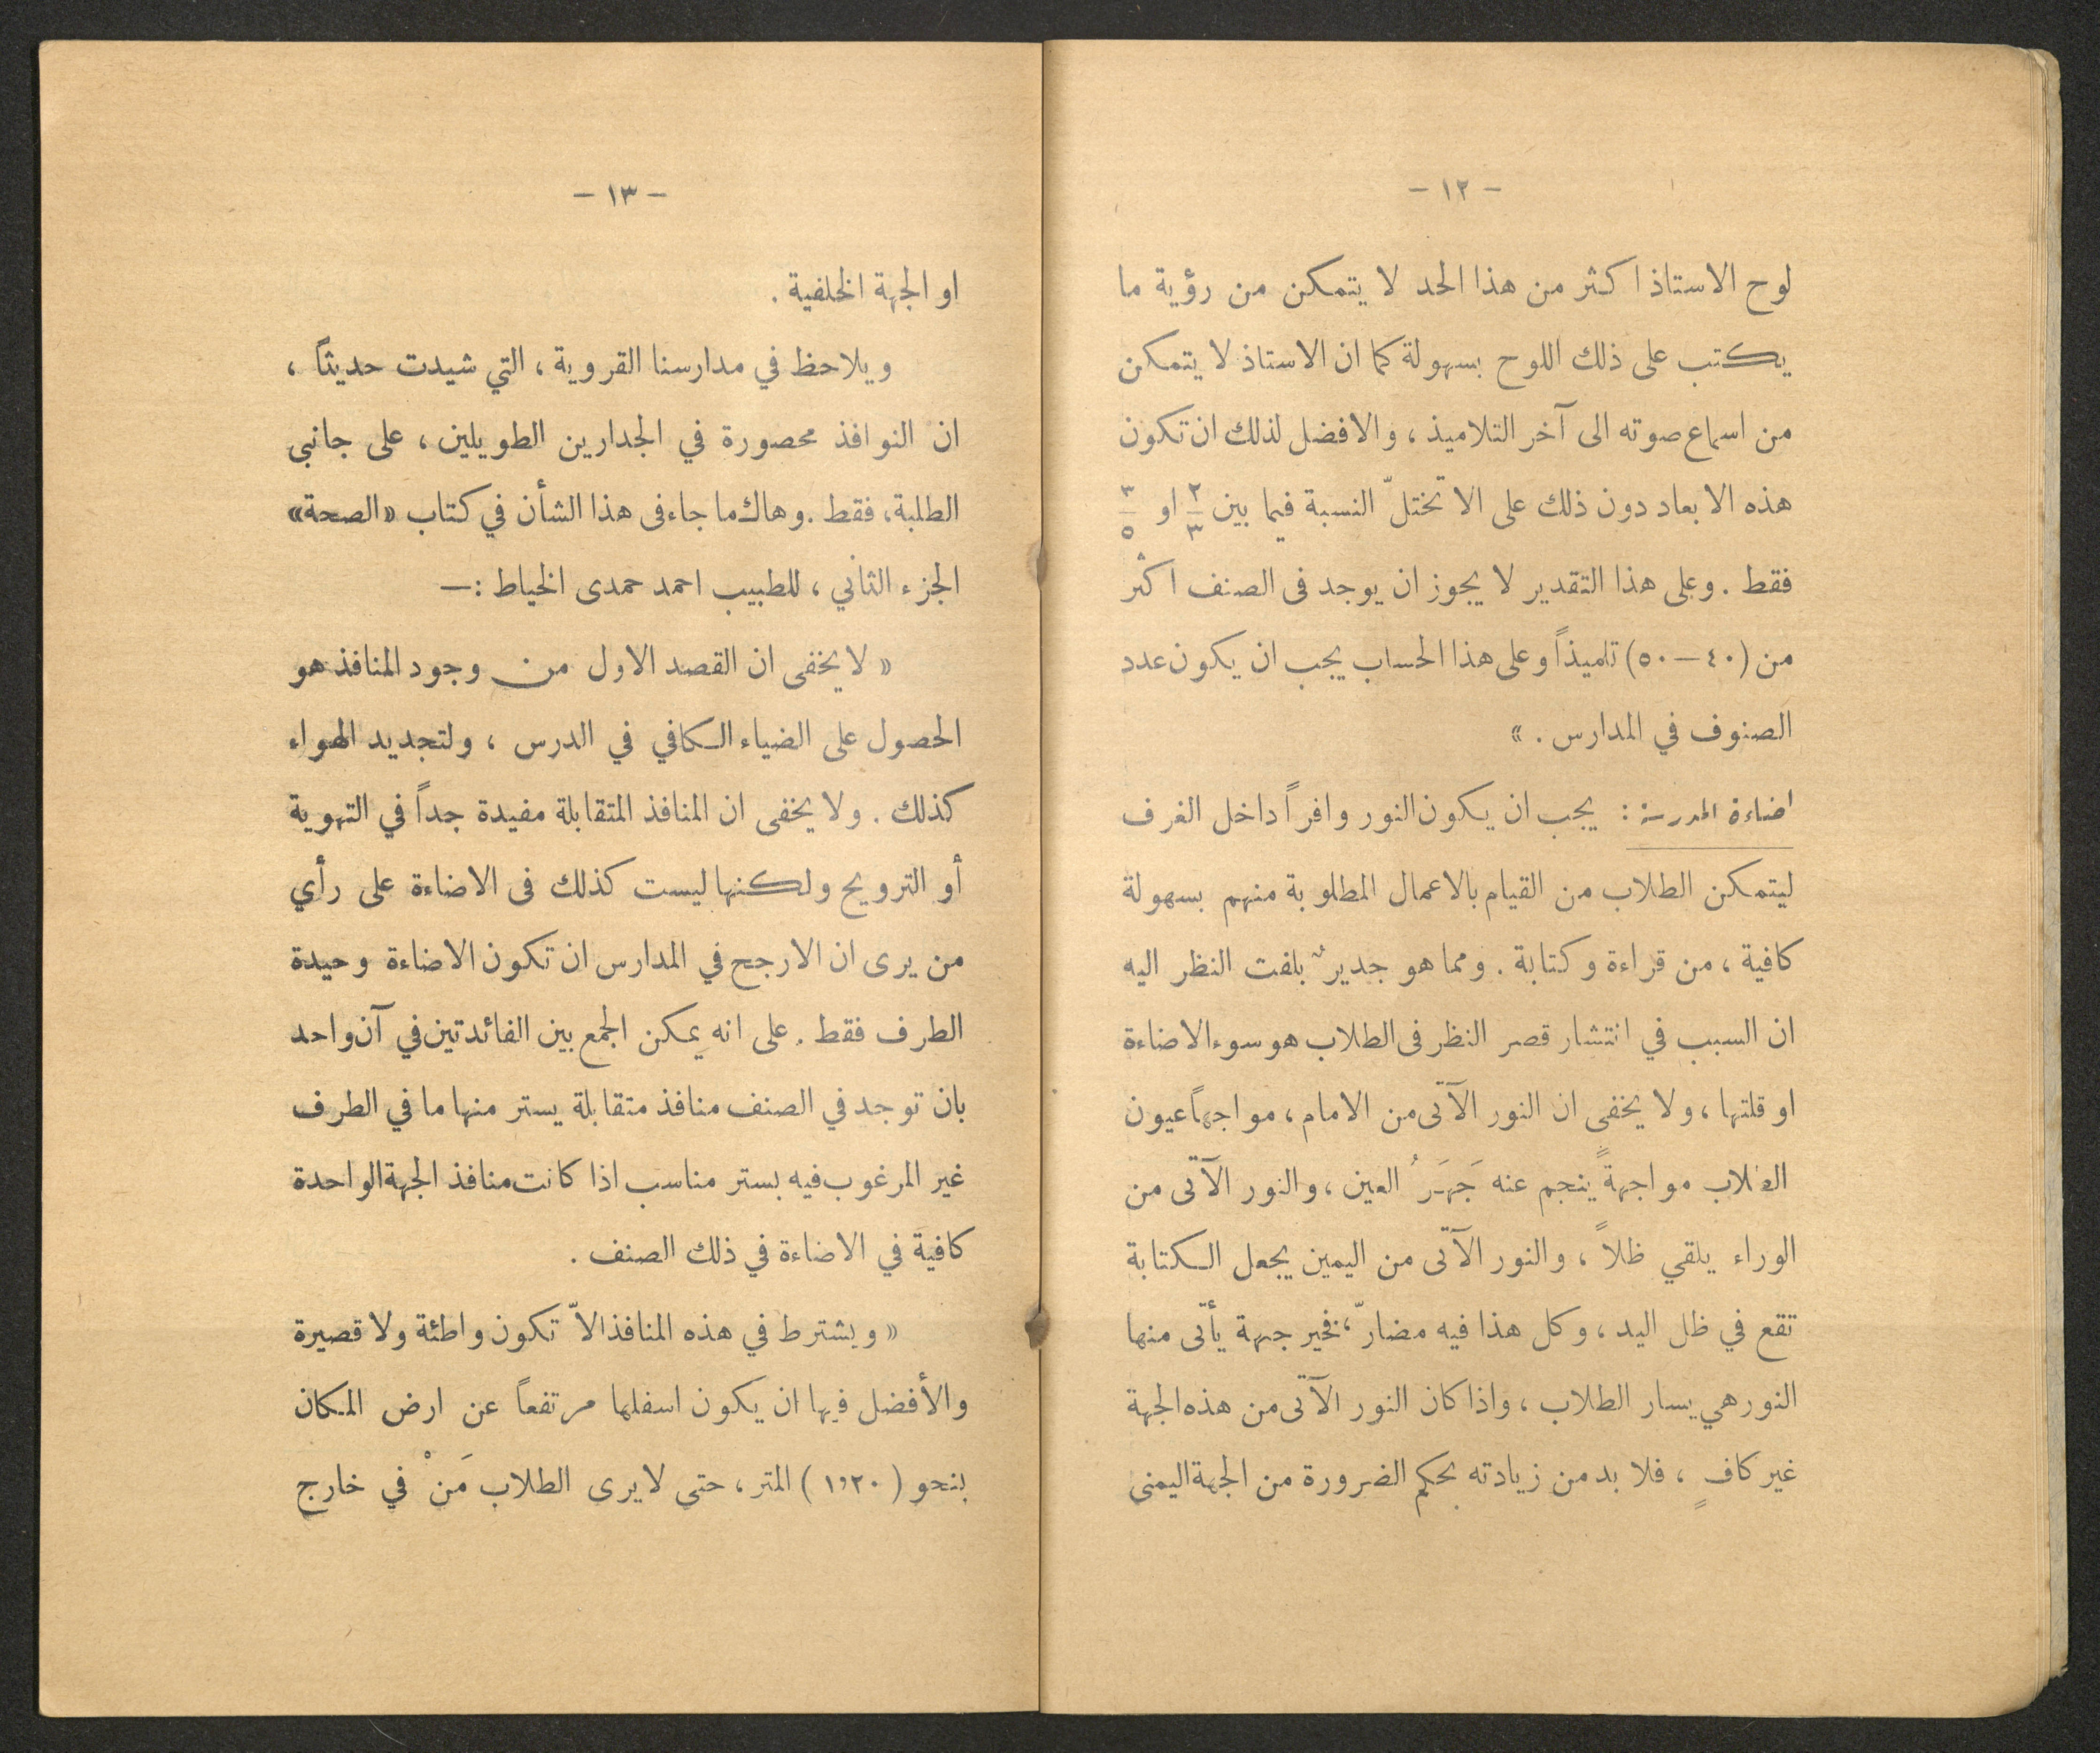 - ١٢ -
لوح الاستاذ اكثر من هذا الحد لا يتمكن من رؤية ما
يكتب على ذلك اللوح بسهولة كما ان الاستاذ لا يتمكن
من اسماع صوته الى آخر التلاميذ ، والافضل لذلك ان تكون
هذه الابعاد دون ذلك على الا تختلّ النسبة فيما بين ٢/٣ او ٣/٥
فقط . وعلى هذا التقدير لا يجوز ان يوجد فى الصنف اكثر
من (٤٠ — ٥٠) تلميذاً وعلى هذا الحساب يجب ان يكون عدد
الصنوف في المدارس . »
اضاءة المدرسة : يجب ان يكون النور وافراً داخل الغرف
ليتمكن الطلاب من القيام بالاعمال المطلوبة منهم بسهولة
كافية ، من قراءة وكتابة . ومما هو جديرٌ بلفت النظر اليه
ان السبب في انتشار قصر النظر فى الطلاب هو سوء الاضاءة
او قلتها ، ولا يخفى ان النور الآتى من الامام ، مواجهاً عيون
الطلاب مواجهةً ينجم عنه جَهَرُ العين ، والنور الآتى من
الوراء يلقي ظلاً ، والنور الآتى من اليمين يجعل الكتابة
تقع في ظل اليد ، وكل هذا فيه مضارّ ، فخير جهة يأتى منها
النور هي يسار الطلاب ، واذا كان النور الآتى من هذه الجهة
غير كافٍ ، فلا بد من زيادته بحكم الضرورة من الجهة اليمنى
- ١٣ -
او الجهة الخلفية .
ويلاحظ في مدارسنا القروية ، التي شيدت حديثاً ،
ان النوافذ محصورة في الجدارين الطويلين ، على جانبى
الطلبة ، فقط . وهاك ما جاء فى هذا الشأن في كتاب «الصحة»
الجزء الثاني ، للطبيب احمد حمدى الخياط : —
« لا يخفى ان القصد الاول من وجود المنافذ هو
الحصول على الضياء الكافي في الدرس ، ولتجديد الهواء
كذلك . ولا يخفى ان المنافذ المتقابلة مفيدة جداً في التهوية
أو الترويح ولكنها ليست كذلك فى الاضاءة على رأي
من يرى ان الارجح في المدارس ان تكون الاضاءة وحيدة
الطرف فقط . على انه يمكن الجمع بين الفائدتين في آن واحد
بان توجد في الصنف منافذ متقابلة يستر منها ما في الطرف
غير المرغوب فيه بستر مناسب اذا كانت منافذ الجهة الواحدة
كافية في الاضاءة في ذلك الصنف .
« ويشترط في هذه المنافذ الاّ تكون واطئة ولا قصيرة
والأفضل فيها ان يكون اسفلها مرتفعاً عن ارض المكان
بنحو ( ١٫٢٠ ) المتر ، حتى لا يرى الطلاب مَنْ في خارج